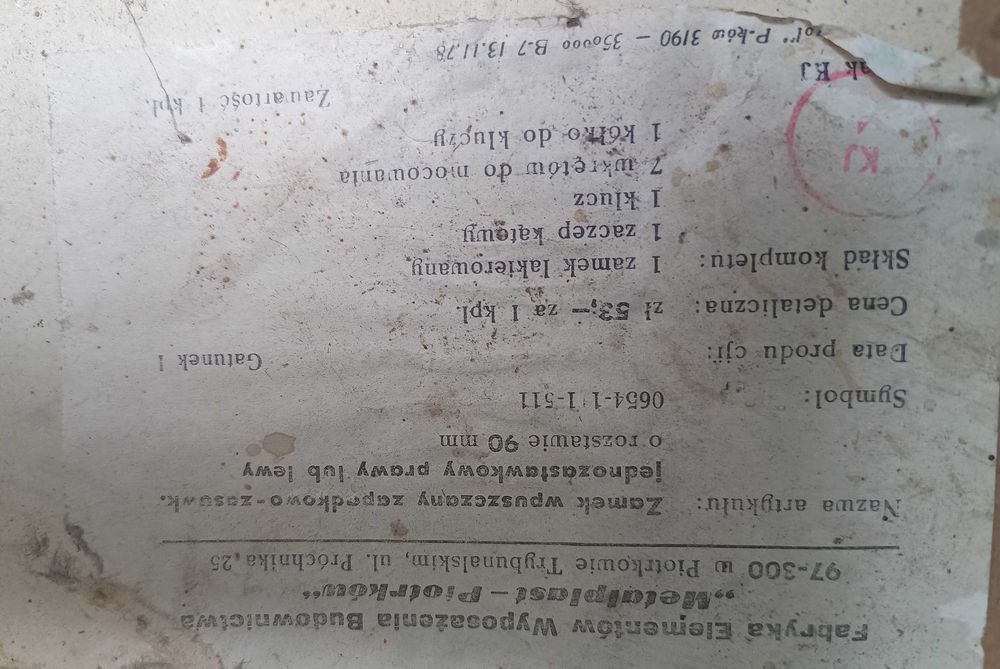 Fabryka Elementów Wyposażenia Budownictwa
„Metalplast – Piotrków”
97-300 w Piotrkowie Trybunalskim, ul. Próchnika 25
Nazwa artykułu: Zamek wpuszczany zapadkowo-zasuwk.
jednozastawkowy prawy lub lewy
o rozstawie 90 mm
Symbol: 0654-1-1 I-511
Data produ cji: Gatunek I
Cena detaliczna: zł 53,— za 1 kpl.
Skład kompletu: 1 zamek lakierowany
1 zaczep kątowy
1 klucz
7 wkrętów do mocowania
1 kółko do kluczy
KJ
Zawartość 1 kpl.
KJ
P-ków 3190 — 350000 B-7 13.11.78